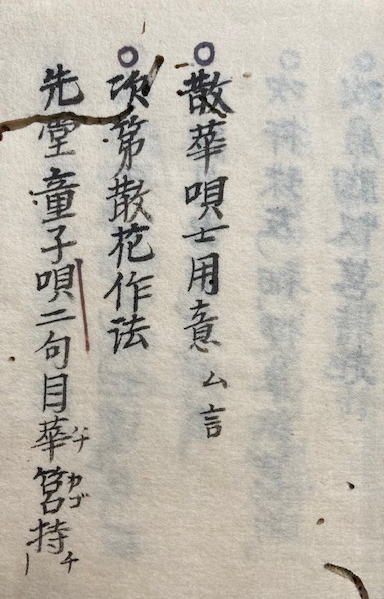 ○散華唄士用意ム言
○次第散花作法
先堂童子唄二句目華筥持